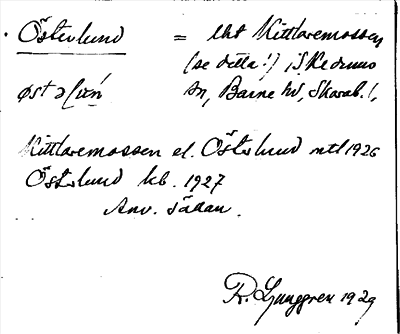 Österlund = lht Kittlaremossen
(se detta!), Skedrums
østəlɯn sn, Barne hd, Skarab. l.
Kittlaremossen el. Österlund mtl 1926
Österlund kb. 1927
Anv. sådan.
R. Ljunggren 1929